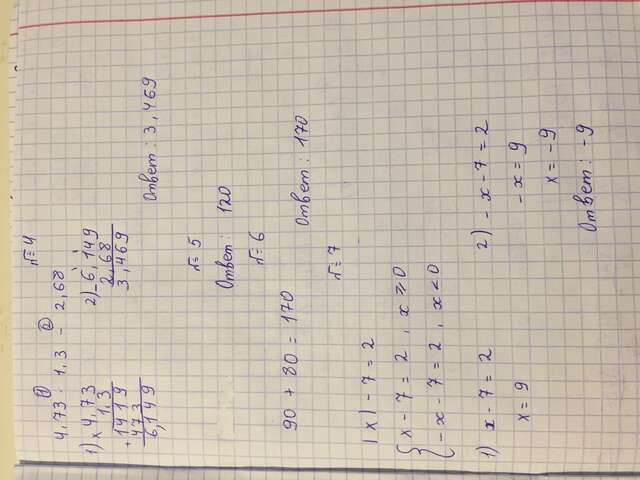 №4
4,73 · 1,3 - 2,68
1) × 4,73
1,3
+ 1419
473
6,149
2) - 6,149
2,68
3,469
Ответ: 3,469
№5
Ответ: 120
№6
90 + 80 = 170
Ответ: 170
№7
|x| - 7 = 2
{ x - 7 = 2, x ≥ 0
- x - 7 = 2, x < 0
1) x - 7 = 2
x = 9
2) - x - 7 = 2
- x = 9
x = -9
Ответ: -9